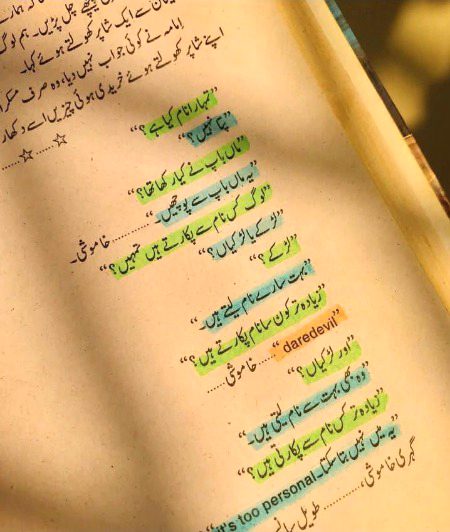 پیچھے چل پڑیں۔ ہم لوگ
سے ایک شاپر کھولتے ہوئے کہا۔
امامہ نے کوئی جواب نہیں دیا، وہ صرف
اپنے شاپر کھولتے ہوئے خریدی ہوئی چیزیں اسے دکھا
☆.....☆.....
"تمہارا نام کیا ہے؟"
"پتا نہیں؟"
"ماں باپ نے کیا رکھا تھا؟"
"یہ ماں باپ سے پوچھیں۔".......خاموشی۔
"لوگ کس نام سے پکارتے ہیں تمہیں؟"
"لڑکے یا لڑکیاں؟"
"لڑکے؟"
"بہت سارے نام لیتے ہیں۔"
"زیادہ تر کون سا نام پکارتے ہیں؟"
"daredevil".....خاموشی.....
"اور لڑکیاں؟"
"وہ بھی بہت سے نام لیتی ہیں۔"
"زیادہ تر کس نام سے پکارتی ہیں؟"
"یہ میں نہیں بتا سکتا۔ it's too personal"
گہری خاموشی،.......... طویل